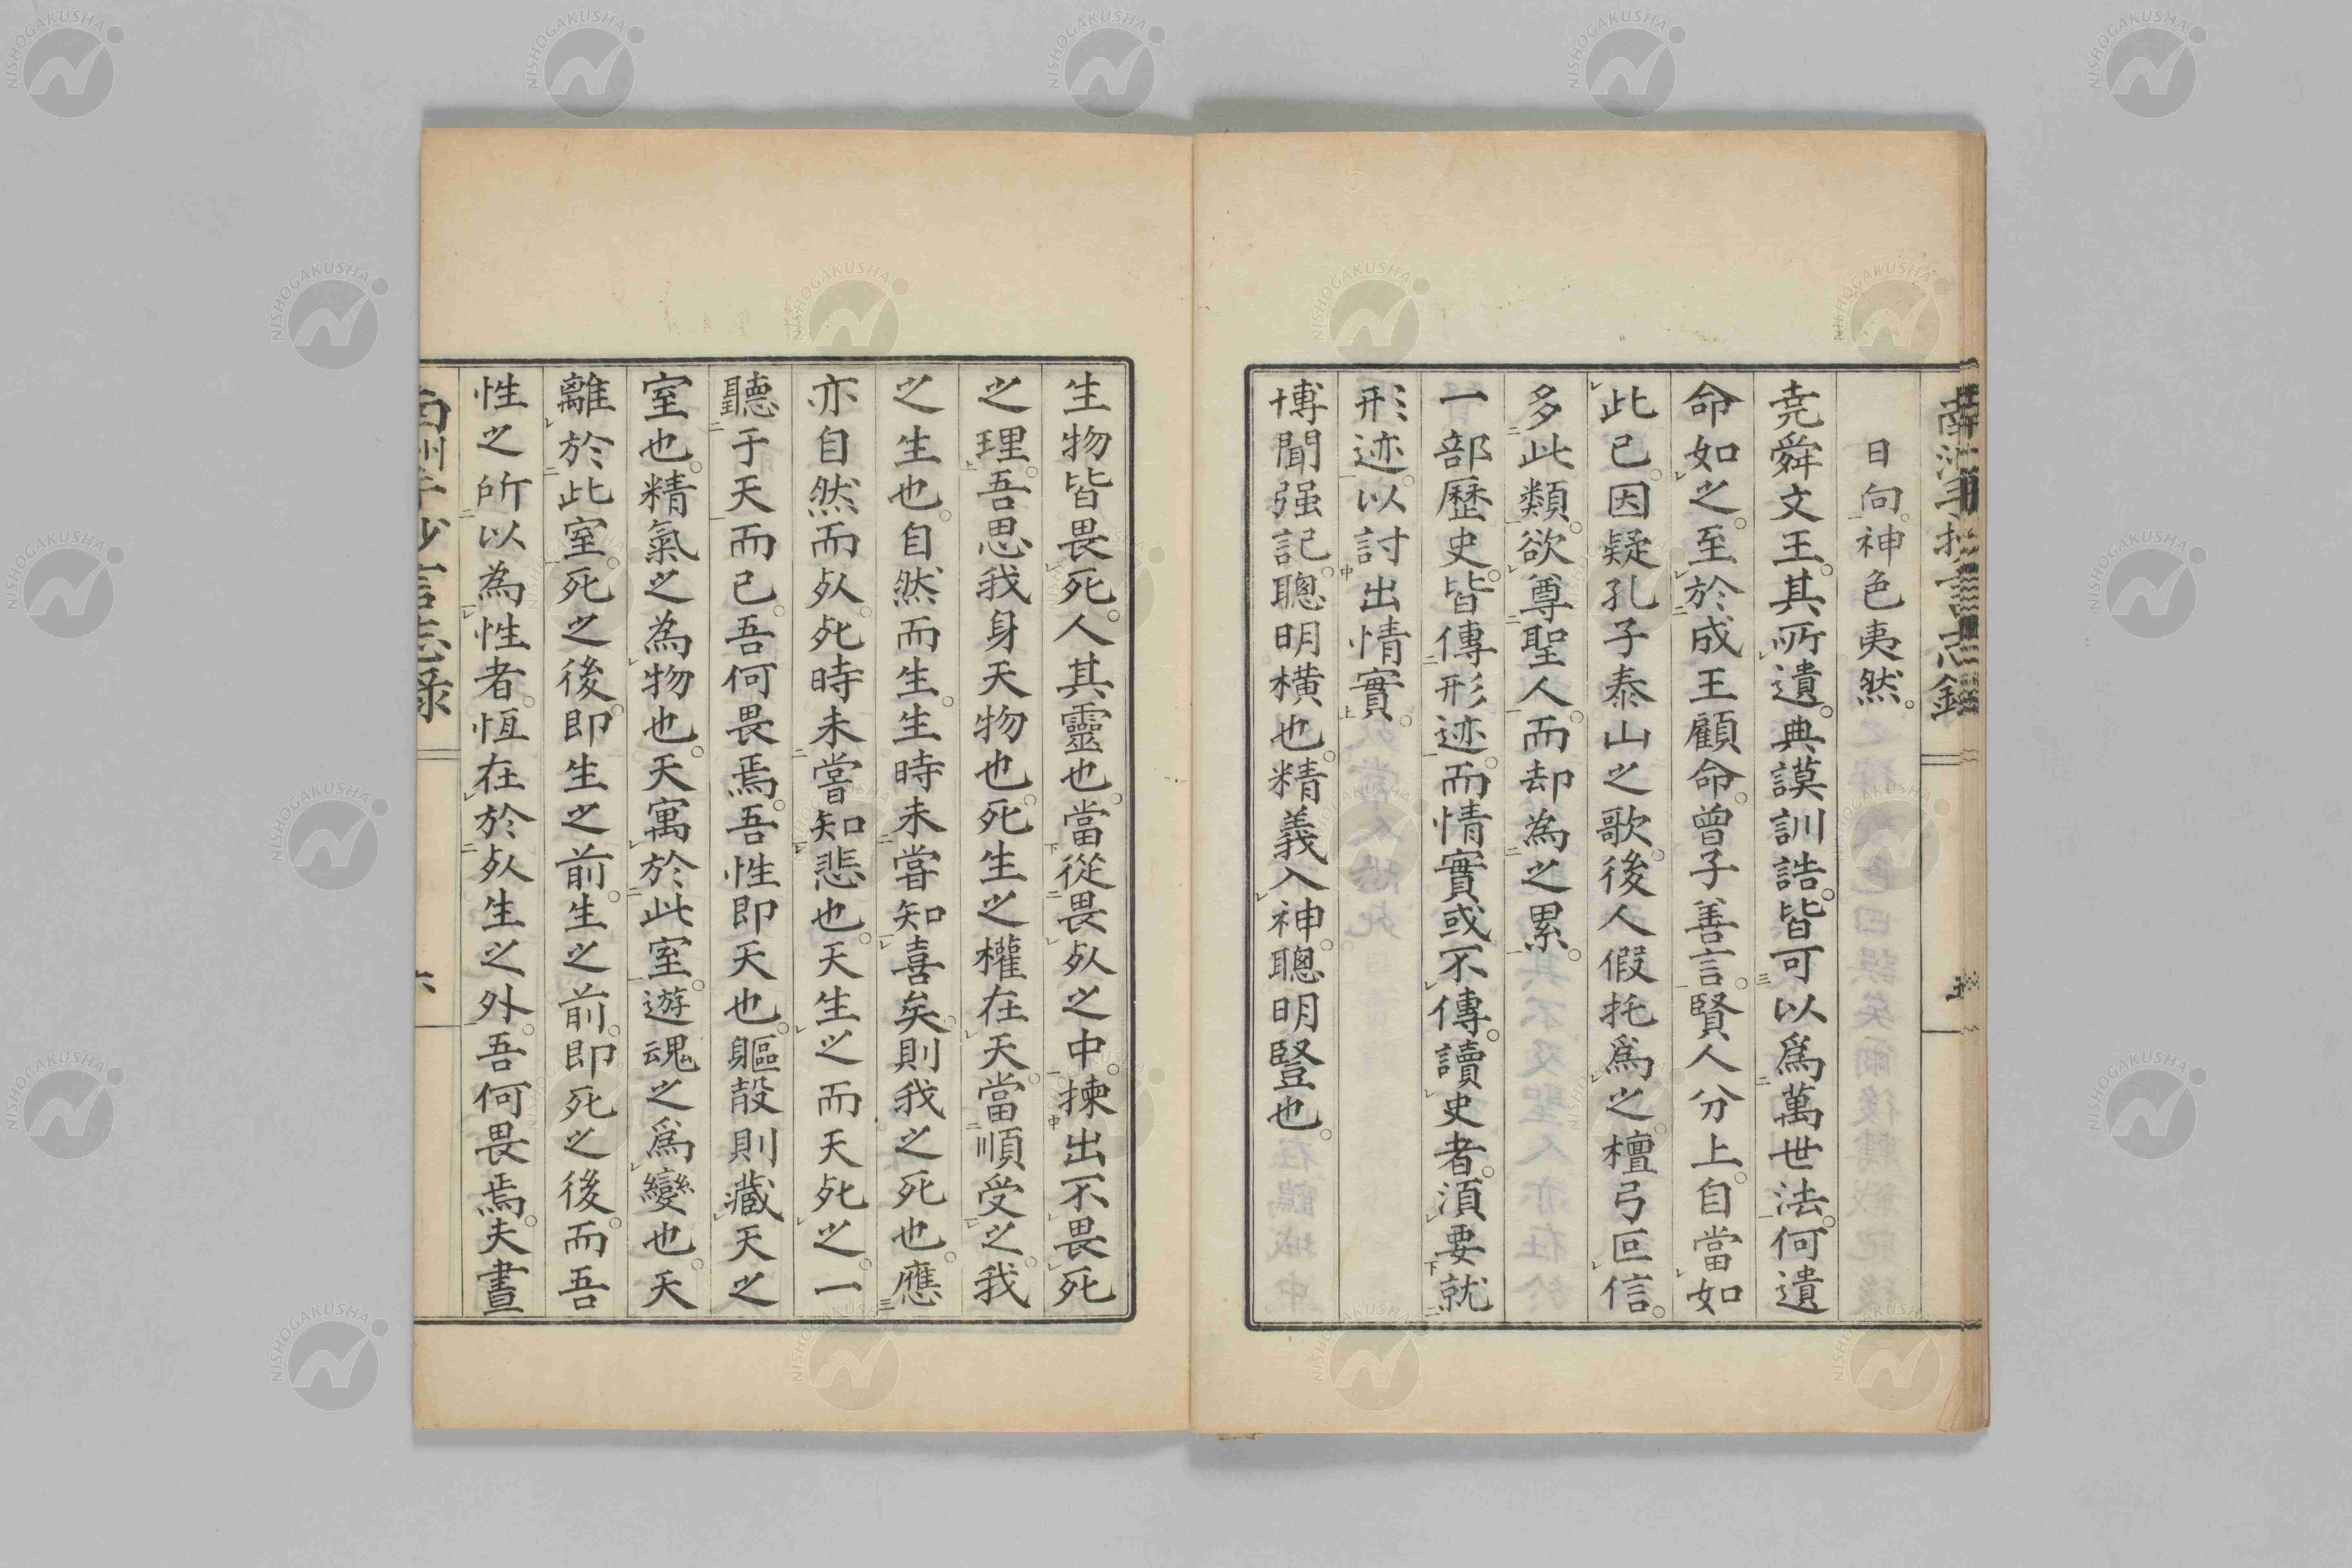 南洲手抄言志錄
日向。神色夷然。
堯舜文王。其所遺。典謨訓誥。皆可以爲萬世法。何遺
命如之。至於成王顧命。曾子善言。賢人分上。自當如
此已。因疑孔子泰山之歌。後人假托爲之。檀弓叵信。
多此類。欲尊聖人。而却為之累。
一部歷史。皆傳形迹。而情實或不傳。讀史者。湏要就
形迹。以討出情實。
博聞强記。聰明橫也。精義入神。聰明豎也。
生物皆畏死。人其靈也。當從畏死之中。揀出不畏死
之理。吾思我身天物也。死生之權在天。當順受之。我
之生也。自然而生。生時未嘗知喜矣。則我之死也。應
亦自然而死。死時未嘗知悲也。天生之而天死之。一
聽于天而已。吾何畏焉。吾性即天也。軀殼則藏天之
室也。精氣之為物也。天寓於此室。遊魂之爲變也。天
離於此室。死之後。即生之前。生之前。即死之後。而吾
性之所以為性者。恆在於死生之外。吾何畏焉。夫晝
南洲手抄言志錄
六
NISHOGAKUSHA